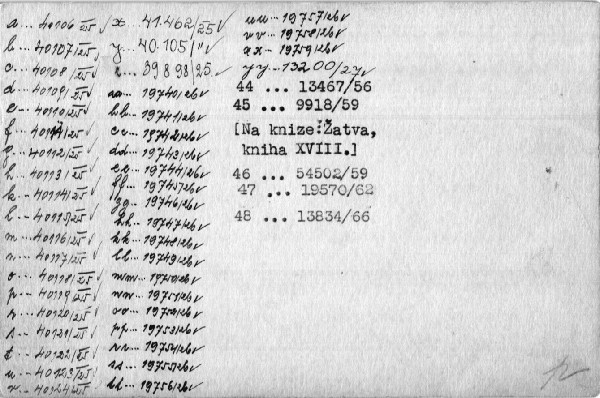 a ... 40106/25 √
b ... 40107/25 √
c ... 40108/25 √
d ... 40109/25 √
e ... 40110/25 √
f ... 40111/25 √
g ... 40112/25 √
h ... 40113/25 √
k ... 40114/25 √
l ... 40115/25 √
m ... 40116/25 √
n ... 40117/25 √
o ... 40118/25 √
p ... 40119/25 √
r ... 40120/25 √
s ... 40121/25 √
t ... 40122/25 √
u ... 40123/25 √
v ... 40124/25 √
x ... 41.462/25 √
y ... 40.105/" √
z ... 39898/25 √
aa ... 19740/26 √
bb ... 19741/26 √
cc ... 19742/26 √
dd ... 19743/26 √
ee ... 19744/26 √
ff ... 19745/26 √
gg ... 19746/26 √
hh ... 19747/26 √
kk ... 19748/26 √
ll ... 19749/26 √
mm ... 19750/26 √
nn ... 19751/26 √
oo ... 19752/26 √
pp ... 19753/26 √
rr ... 19754/26 √
ss ... 19755/26 √
tt ... 19756/26 √
uu ... 19757/26 √
vv ... 19758/26 √
xx ... 19759/26 √
yy ... 13200/27 √
44 ... 13467/56
45 ... 9918/59
[Na knize: Žatva,
kniha XVIII.]
46 ... 54502/59
47 ... 19570/62
48 ... 13834/66